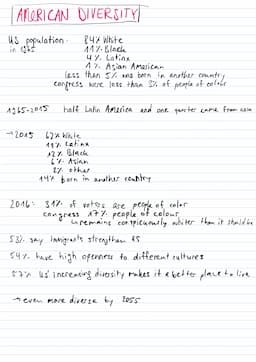 AMERICAN DIVERSITY
US population 84% White
in 1965 11% Black
4% Latinx
1% Asian American
less than 5% was born in another country
congress were less than 3% of people of color
1965-2015 half Latin America and one quarter came from asia
→ 2015 62% White
18% Latinx
12% Black
6% Asian
2% other
14% born in another country
2016: 31% of votes are people of color
congress 17% people of colour
↳ remains conspicuously whiter than it should be
53% say strengthen US
54% have high openness to different cultures
57% US' increasing diversity makes it a better place to live
→ even more diverse by 2055